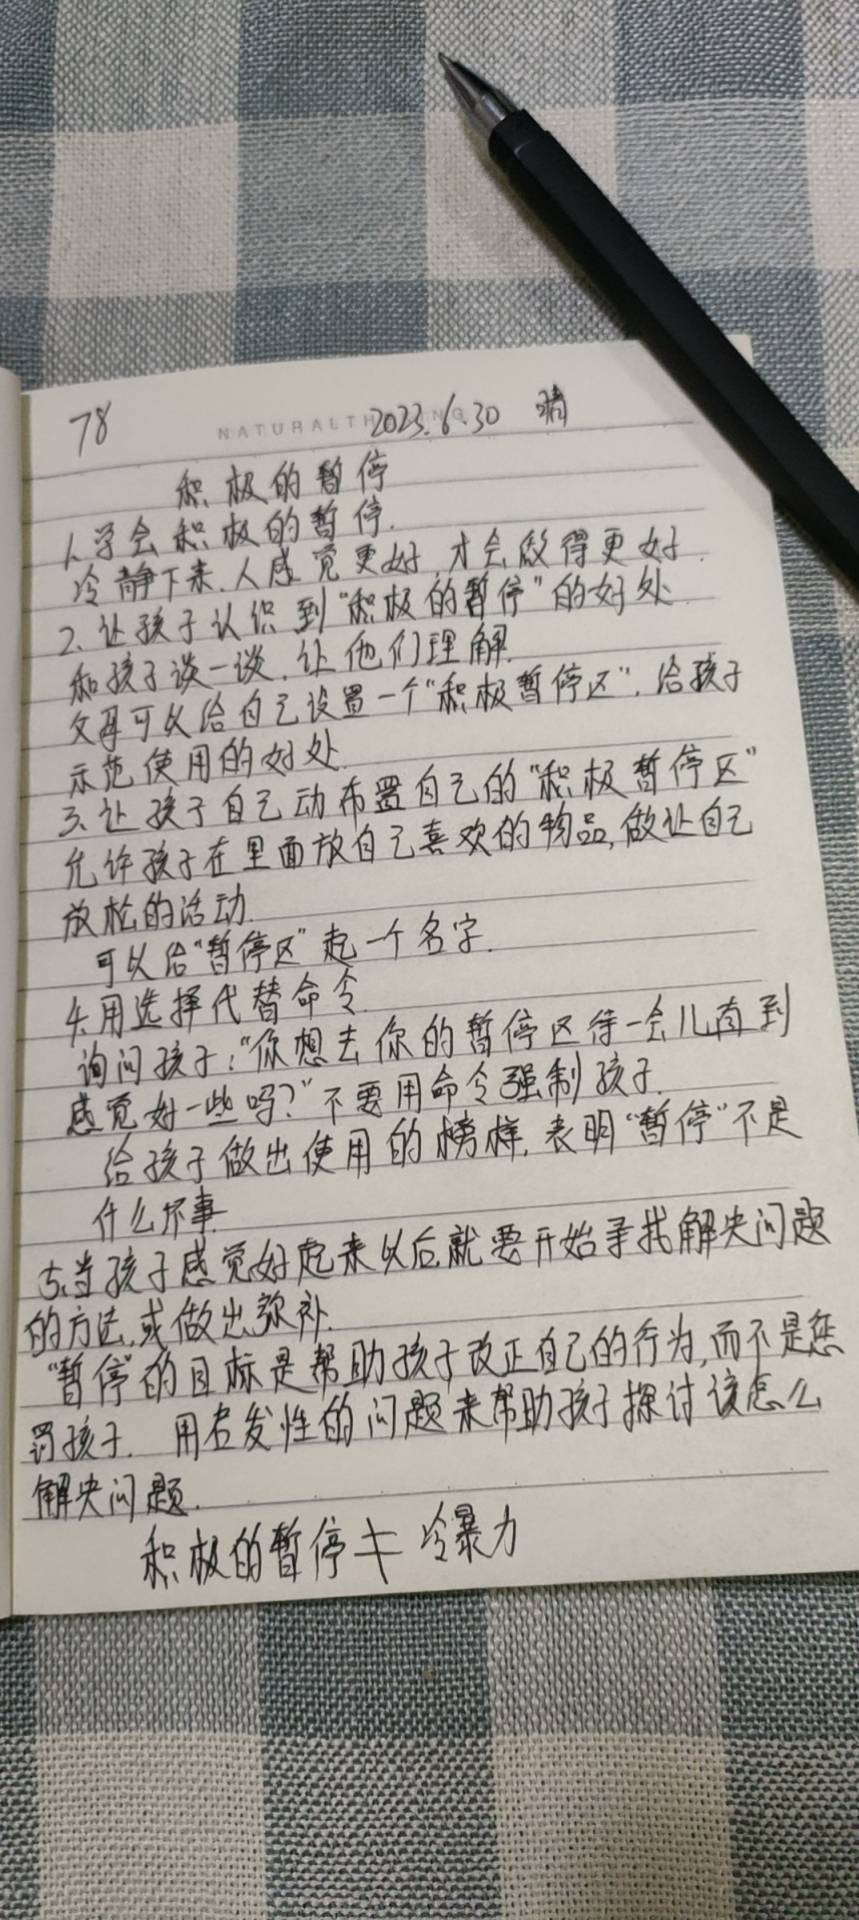 78
NATURALTHING
2023.6.30 晴
积极的暂停
1、学会积极的暂停.
冷静下来.人感觉更好,才会做得更好.
2、让孩子认识到“积极的暂停”的好处
和孩子谈一谈,让他们理解.
父母可以给自己设置一个“积极暂停区”,给孩子
示范使用的好处.
3、让孩子自己动布置自己的“积极暂停区”
允许孩子在里面放自己喜欢的物品,做让自己
放松的活动.
可以给“暂停区”起一个名字.
4、用选择代替命令.
询问孩子:“你想去你的暂停区待一会儿直到
感觉好一些吗?”不要用命令强制孩子.
给孩子做出使用的榜样,表明“暂停”不是
什么坏事
5、当孩子感觉好起来以后,就要开始寻找解决问题
的方法,或做出弥补.
“暂停”的目标是帮助孩子改正自己的行为,而不是惩
罚孩子. 用启发性的问题来帮助孩子探讨该怎么
解决问题.
积极的暂停≠冷暴力